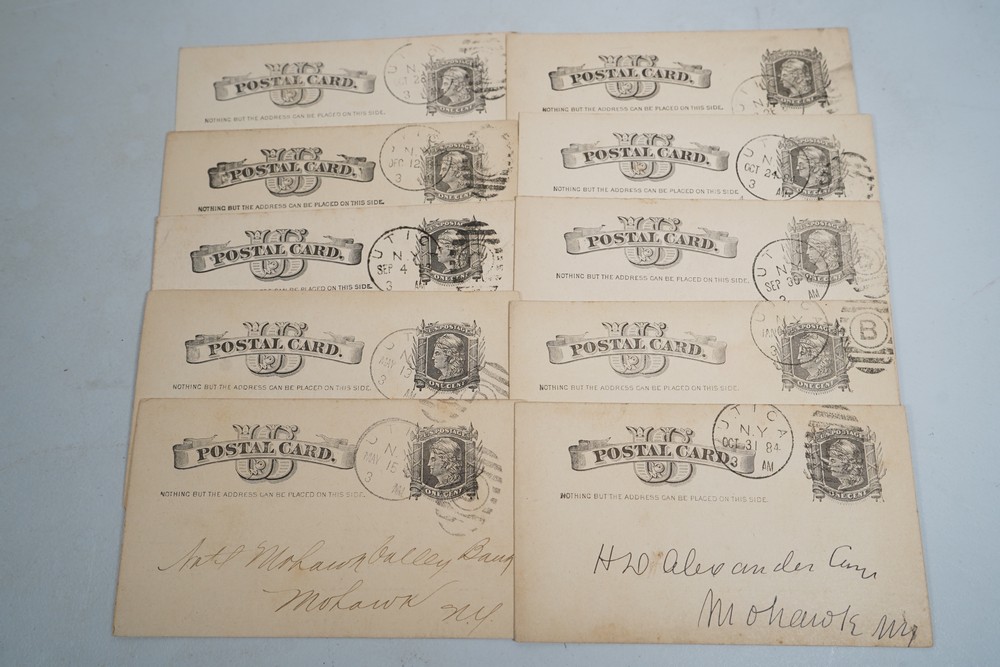 POSTAL CARD.
NOTHING BUT THE ADDRESS CAN BE PLACED ON THIS SIDE.
UTICA
N.Y.
3
ONE CENT
POSTAL CARD.
NOTHING BUT THE ADDRESS CAN BE PLACED ON THIS SIDE.
ONE CENT
POSTAL CARD.
NOTHING BUT THE ADDRESS CAN BE PLACED ON THIS SIDE.
DEC 12
3
ONE CENT
POSTAL CARD.
NOTHING BUT THE ADDRESS CAN BE PLACED ON THIS SIDE.
UTICA
N.Y.
OCT 24
3 AM
ONE CENT
POSTAL CARD.
NOTHING BUT THE ADDRESS CAN BE PLACED ON THIS SIDE.
UTICA
N.Y.
SEP 4
3 AM
U.S. POSTAGE
ONE CENT
POSTAL CARD.
NOTHING BUT THE ADDRESS CAN BE PLACED ON THIS SIDE.
UTICA
N.Y.
SEP 30
3 AM
POSTAL CARD.
NOTHING BUT THE ADDRESS CAN BE PLACED ON THIS SIDE.
3
U.S. POSTAGE
ONE CENT
POSTAL CARD.
NOTHING BUT THE ADDRESS CAN BE PLACED ON THIS SIDE.
UTICA
N.Y.
3
B
ONE CENT
POSTAL CARD.
NOTHING BUT THE ADDRESS CAN BE PLACED ON THIS SIDE.
3 AM
U.S. POSTAGE
ONE CENT
Natl Mohawk Valley Bank
Mohawk
N.Y.
POSTAL CARD.
NOTHING BUT THE ADDRESS CAN BE PLACED ON THIS SIDE.
UTICA
N.Y.
OCT 31 84
3 AM
ONE CENT
H D Alexander
Mohawk NY